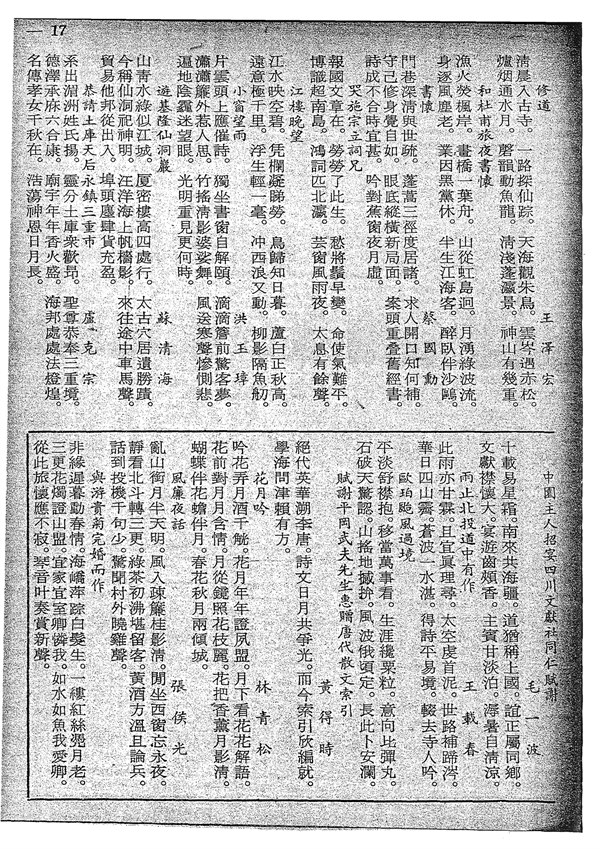 17
修道　王澤宏
清晨入古寺。一路探仙踪。天海觀朱鳥。雲岑遇赤松。
爐烟通水月。磬韻動魚龍。清淺蓬瀛景。神山有幾重。
和杜甫旅夜書懷
漁火熒楓岸。畫橋一葉舟。山從虹島迴。月湧綠波流。
身逐風塵老。業因黑黨休。半生江海客。醉臥伴沙鷗。
書懷　蔡國勳
門巷深清與世疏。蓬蒿三徑度居諸。求人開口知何補。
守己修身覺自如。眼底縱橫新局面。案頭重疊舊經書。
詩成不合時宜甚。吟對蕉窗夜月虛。
哭施宗立詞兄
報國文章在。勞勞了此生。愁將鬚早變。命使氣難平。
博識超南島。鴻詞匹北瀛。芸窗風雨夜。太息有餘聲。
江樓晚望
江水映空碧。凭欄凝睇勞。鳥歸知日暮。蘆白正秋高。
遠意極千里。浮生輕一毫。冲西浪又動。柳影隔魚舠。
小窗望雨　洪玉璋
片雲頭上應催詩。獨坐書窗自解頤。滴滴簷前驚客夢。
瀟瀟簾外惹人思。竹搖清影婆娑舞。風送寒聲慘惻悲。
遍地陰霾迷望眼。光明重見更何時。
遊基隆仙洞巖　蘇清海
山青水綠似江城。厦密樓高四處行。太古穴居遺勝蹟。
今稱仙洞祀神明。汪洋海上帆檣影。來往途中車馬聲。
貿易他邦從出入。埠頭塵肆貨充盈。
恭請土庫天后永鎮三重市　盧克宗
系出湄洲姓氏揚。靈分土庫衆歡昂。聖尊恭奉三重境。
德澤承麻六合康。廟宇年年香火盛。海邦處處法燈煌。
名傳孝女千秋在。浩蕩神恩日月長。
中園主人招宴四川文獻社同仁賦謝　毛一波
十載易星霜。南來共海疆。道猶稱上國。誼正屬同鄉。
文獻襟懷大。宴遊齒頰香。主賓甘淡泊。溽暑自清涼。
雨止北投道中有作　王載春
此雨亦甘霖。且宜眞理尋。太空虔首泥。世路補蹄涔。
華日四山霽。蒼波一水湛。得詩平易境。輟去寺人吟。
歐珀颱風過境
平淡舒襟抱。移當萬事看。生涯纔粟粒。意向比彈丸。
石破天驚認。山搖地撼拚。風波俄頃定。長此卜安瀾。
賦謝平岡武夫先生惠贈唐代散文索引　黃得時
絕代英華溯李唐。詩文日月共爭光。而今索引欣編就。
學海問津賴有方。
花月吟　林青松
吟花弄月酒千觥。花月年年證夙盟。月下看花花解語。
花前對月月含情。月從鏡照花枝麗。花把香薰月影清。
蝴蝶伴花蟾伴月。春花秋月兩傾城。
風簾夜話　張侯光
亂山銜月半天明。風入疎簾桂影清。閒坐西窗忘永夜。
靜看北斗轉三更。綠茶初沸堪留客。黃酒方溫且論兵。
話到投機千句少。驚聞村外曉雞聲。
與游貴菊完婚而作
非緣遲暮動春情。海嶠萍踪白髮生。一縷紅絲憑月老。
三更花燭證山盟。宜家宜室卿憐我。如水如魚我愛卿。
從此旅懷應不寂。琴音叶奏賞新聲。